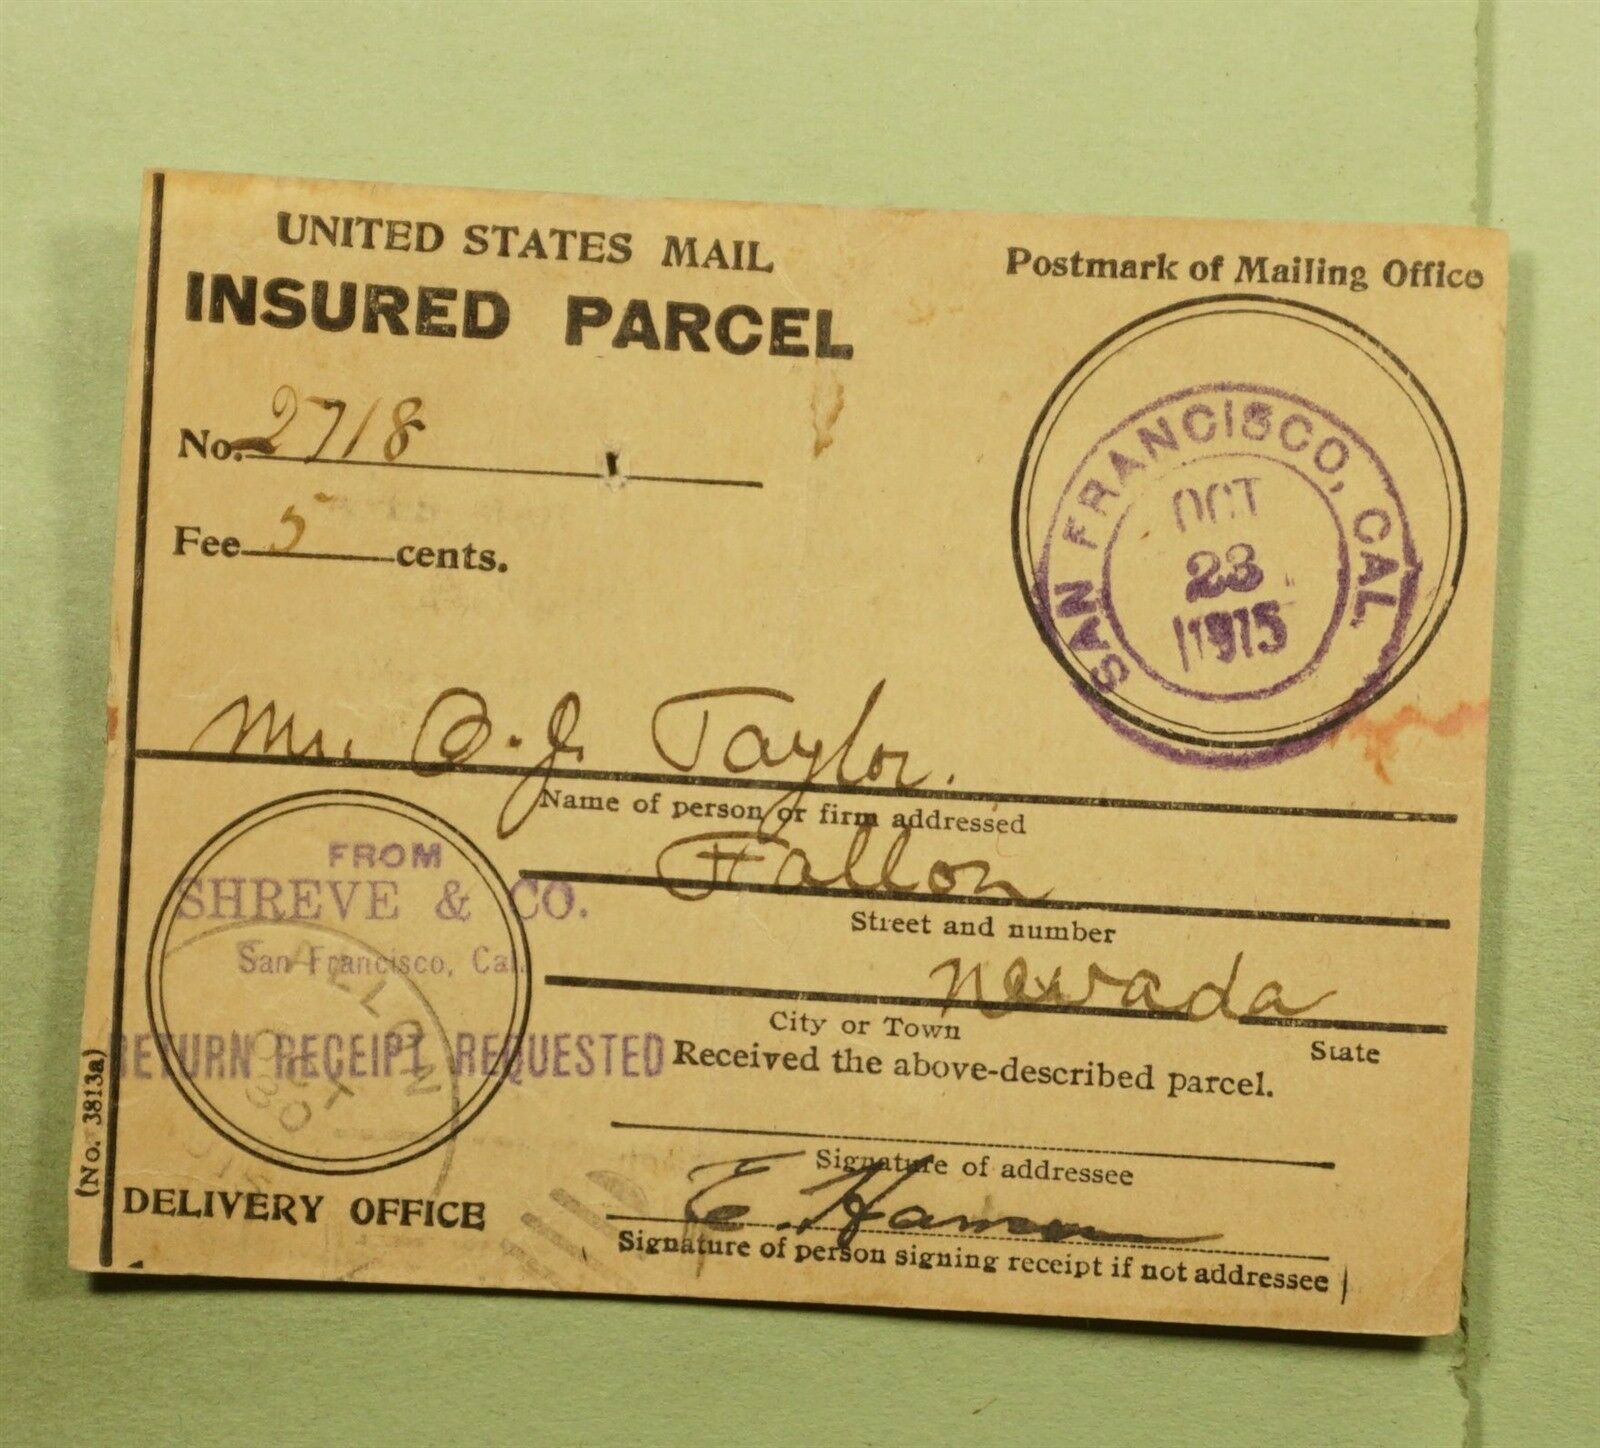 UNITED STATES MAIL
INSURED PARCEL
No. 2718
Fee 5 cents.
Postmark of Mailing Office
SAN FRANCISCO, CAL.
OCT
23
1915
Mr. O. J. Taylor.
Name of person or firm addressed
Fallon
Street and number
Nevada
City or Town
State
FROM
SHREVE & CO.
San Francisco, Cal.
RETURN RECEIPT REQUESTED
FALLON
OCT
DELIVERY OFFICE
(No. 3813a)
Received the above-described parcel.
Signature of addressee
E. Hamm
Signature of person signing receipt if not addressee